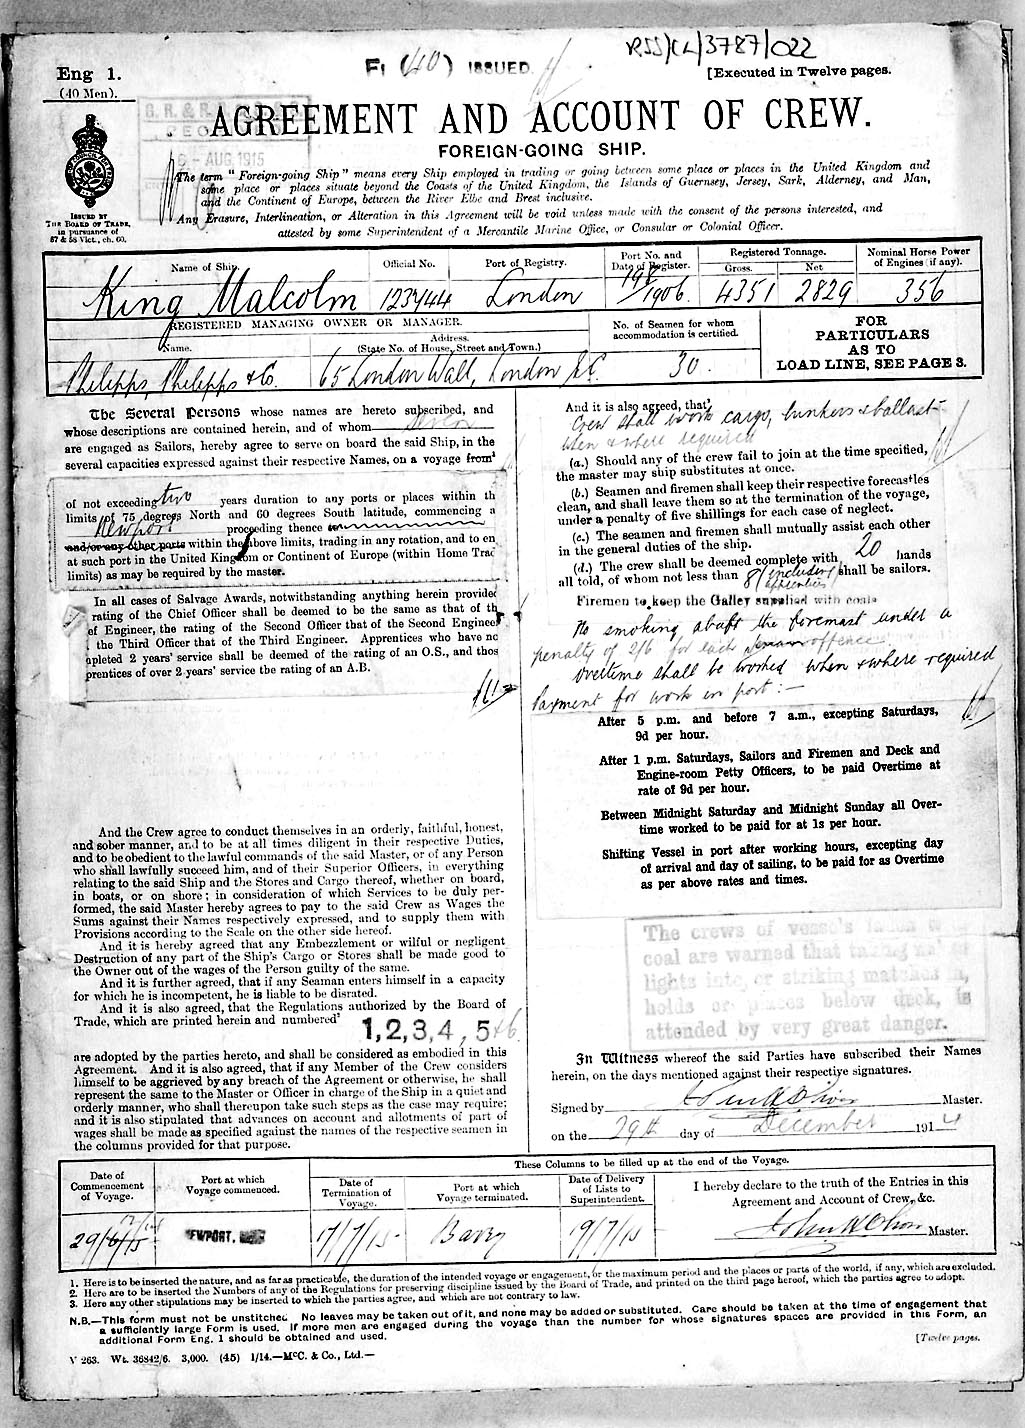 RSS/CL/3787/022
Eng 1.
(40 Men).
(40) ISSUED
[Executed in Twelve pages.
AGREEMENT AND ACCOUNT OF CREW.
FOREIGN-GOING SHIP.
AUG 1915
ISSUED BY
THE BOARD OF TRADE,
in pursuance of
57 & 58 Vict., ch. 60.
The term "Foreign-going Ship" means every Ship employed in trading or going between some place or places in the United Kingdom and
some place or places situate beyond the Coasts of the United Kingdom, the Islands of Guernsey, Jersey, Sark, Alderney, and Man,
and the Continent of Europe, between the River Elbe and Brest inclusive.
Any Erasure, Interlineation, or Alteration in this Agreement will be void unless made with the consent of the persons interested, and
attested by some Superintendent of a Mercantile Marine Office, or Consular or Colonial Officer.
Name of Ship. Official No. Port of Registry. Port No. and Date of Register. Registered Tonnage. Gross. Net Nominal Horse Power of Engines (if any).
King Malcolm 123744 London 198/1906. 4351 2829 356
REGISTERED MANAGING OWNER OR MANAGER.
Name. Address. (State No. of House, Street and Town.) No. of Seamen for whom accommodation is certified.
Philipps, Philipps & Co. 65 London Wall, London E.C. 30.
FOR
PARTICULARS
AS TO
LOAD LINE, SEE PAGE 3.
The Several Persons whose names are hereto subscribed, and
whose descriptions are contained herein, and of whom
are engaged as Sailors, hereby agree to serve on board the said Ship, in the
several capacities expressed against their respective Names, on a voyage from¹
of not exceeding two years duration to any ports or places within th
limits of 75 degrees North and 60 degrees South latitude, commencing a
Newport proceeding thence to
and/or any other ports within the above limits, trading in any rotation, and to en
at such port in the United Kingdom or Continent of Europe (within Home Trac
limits) as may be required by the master.
In all cases of Salvage Awards, notwithstanding anything herein provided
rating of the Chief Officer shall be deemed to be the same as that of th
of Engineer, the rating of the Second Officer that of the Second Engineer
the Third Officer that of the Third Engineer. Apprentices who have no
mpleted 2 years' service shall be deemed of the rating of an O.S., and thos
prentices of over 2 years' service the rating of an A.B.
And the Crew agree to conduct themselves in an orderly, faithful, honest,
and sober manner, and to be at all times diligent in their respective Duties,
and to be obedient to the lawful commands of the said Master, or of any Person
who shall lawfully succeed him, and of their Superior Officers, in everything
relating to the said Ship and the Stores and Cargo thereof, whether on board,
in boats, or on shore; in consideration of which Services to be duly per-
formed, the said Master hereby agrees to pay to the said Crew as Wages the
Sums against their Names respectively expressed, and to supply them with
Provisions according to the Scale on the other side hereof.
And it is hereby agreed that any Embezzlement or wilful or negligent
Destruction of any part of the Ship's Cargo or Stores shall be made good to
the Owner out of the wages of the Person guilty of the same.
And it is further agreed, that if any Seaman enters himself in a capacity
for which he is incompetent, he is liable to be disrated.
And it is also agreed, that the Regulations authorized by the Board of
Trade, which are printed herein and numbered²
1, 2, 3, 4, 5 & 6
are adopted by the parties hereto, and shall be considered as embodied in this
Agreement. And it is also agreed, that if any Member of the Crew considers
himself to be aggrieved by any breach of the Agreement or otherwise, he shall
represent the same to the Master or Officer in charge of the Ship in a quiet and
orderly manner, who shall thereupon take such steps as the case may require:
and it is also stipulated that advances on account and allotments of part of
wages shall be made as specified against the names of the respective seamen in
the columns provided for that purpose.
And it is also agreed, that³
Crew shall work cargo, bunkers & ballast
when & where required
(a.) Should any of the crew fail to join at the time specified,
the master may ship substitutes at once.
(b.) Seamen and firemen shall keep their respective forecastles
clean, and shall leave them so at the termination of the voyage,
under a penalty of five shillings for each case of neglect.
(c.) The seamen and firemen shall mutually assist each other
in the general duties of the ship.
(d.) The crew shall be deemed complete with 20 hands
all told, of whom not less than 8 (including apprentices) shall be sailors.
Firemen to keep the Galley supplied with coals
No smoking abaft the foremast under a
penalty of 2/6 for each offence
Overtime shall be worked when & where required
Payment for work in port:—
After 5 p.m. and before 7 a.m., excepting Saturdays,
9d per hour.
After 1 p.m. Saturdays, Sailors and Firemen and Deck and
Engine-room Petty Officers, to be paid Overtime at
rate of 9d per hour.
Between Midnight Saturday and Midnight Sunday all Over-
time worked to be paid for at 1s per hour.
Shifting Vessel in port after working hours, excepting day
of arrival and day of sailing, to be paid for as Overtime
as per above rates and times.
The crews of vessels laden with
coal are warned that taking naked
lights into, or striking matches in,
holds or places below deck, is
attended by very great danger.
In Witness whereof the said Parties have subscribed their Names
herein, on the days mentioned against their respective signatures.
Signed by Master.
on the 29th day of December 1914
These Columns to be filled up at the end of the Voyage.
Date of Commencement of Voyage. Port at which Voyage commenced. Date of Termination of Voyage. Port at which Voyage terminated. Date of Delivery of Lists to Superintendent.
NEWPORT, 17/7/15 Barry 19/7/15
I hereby declare to the truth of the Entries in this
Agreement and Account of Crew, &c.
Master.
1. Here is to be inserted the nature, and as far as practicable, the duration of the intended voyage or engagement, or the maximum period and the places or parts of the world, if any, which are excluded.
2. Here are to be inserted the Numbers of any of the Regulations for preserving discipline issued by the Board of Trade, and printed on the third page hereof, which the parties agree to adopt.
3. Here any other stipulations may be inserted to which the parties agree, and which are not contrary to law.
N.B.—This form must not be unstitched. No leaves may be taken out of it, and none may be added or substituted. Care should be taken at the time of engagement that
a sufficiently large Form is used. If more men are engaged during the voyage than the number for whose signatures spaces are provided in this Form, an
additional Form Eng. 1 should be obtained and used.
[Twelve pages.
V 263. Wt. 36842/6. 3,000. (45) 1/14.—McC. & Co., Ltd.—